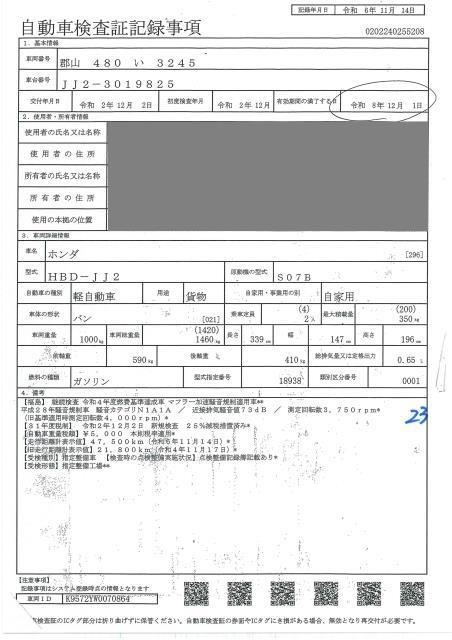 記録年月日 令和 6年11月14日
自動車検査証記録事項
0202240255208
1．基本情報
車両番号 郡山 480 い 3245
車台番号 JJ2-3019825
交付年月日 令和 2年12月 2日 初度検査年月 令和 2年12月 有効期間の満了する日 令和 8年12月 1日
2．使用者・所有者情報
使用者の氏名又は名称
使用者の住所
所有者の氏名又は名称
所有者の住所
使用の本拠の位置
3．車両詳細情報
車名 ホンダ [296]
型式 HBD-JJ2 原動機の型式 S07B
自動車の種別 軽自動車 用途 貨物 自家用・事業用の別 自家用
車体の形状 バン [021] 乗車定員 (4) 2人 最大積載量 (200) 350kg
車両重量 1000kg 車両総重量 (1420) 1460kg 長さ 339cm 幅 147cm 高さ 196cm
前軸重 590kg 後軸重 410kg 総排気量又は定格出力 0.65
燃料の種類 ガソリン 型式指定番号 18938 類別区分番号 0001
4．備考
【福島】 継続検査 令和4年度燃費基準達成車 マフラー加速騒音規制適用車**
平成28年騒音規制車 騒音カテゴリN1A1A ／ 近接排気騒音値73dB ／ 測定回転数3,750rpm*
(旧基準適用時測定回転数4,000rpm)*
【31年度税制】 令和2年12月2日 新規検査 25%減税措置済み*
【自動車重量税額】¥5,000 本則税率適用*
【走行距離計表示値】47,500km(令和6年11月14日)*
【旧走行距離計表示値】21,800km(令和4年11月17日)*
【受検種別】指定整備車 【検査時の点検整備実施状況】点検整備記録簿記載あり*
【受検形態】指定整備工場**
23
【注意事項】
記録事項はシステム登録時点の情報となります
車両ID K9572YW0070864
検査証のICタグ部分は折り曲げずに保管ください。自動車検査証の券面やICタグにき損がある場合、無効となり再交付が必要です。